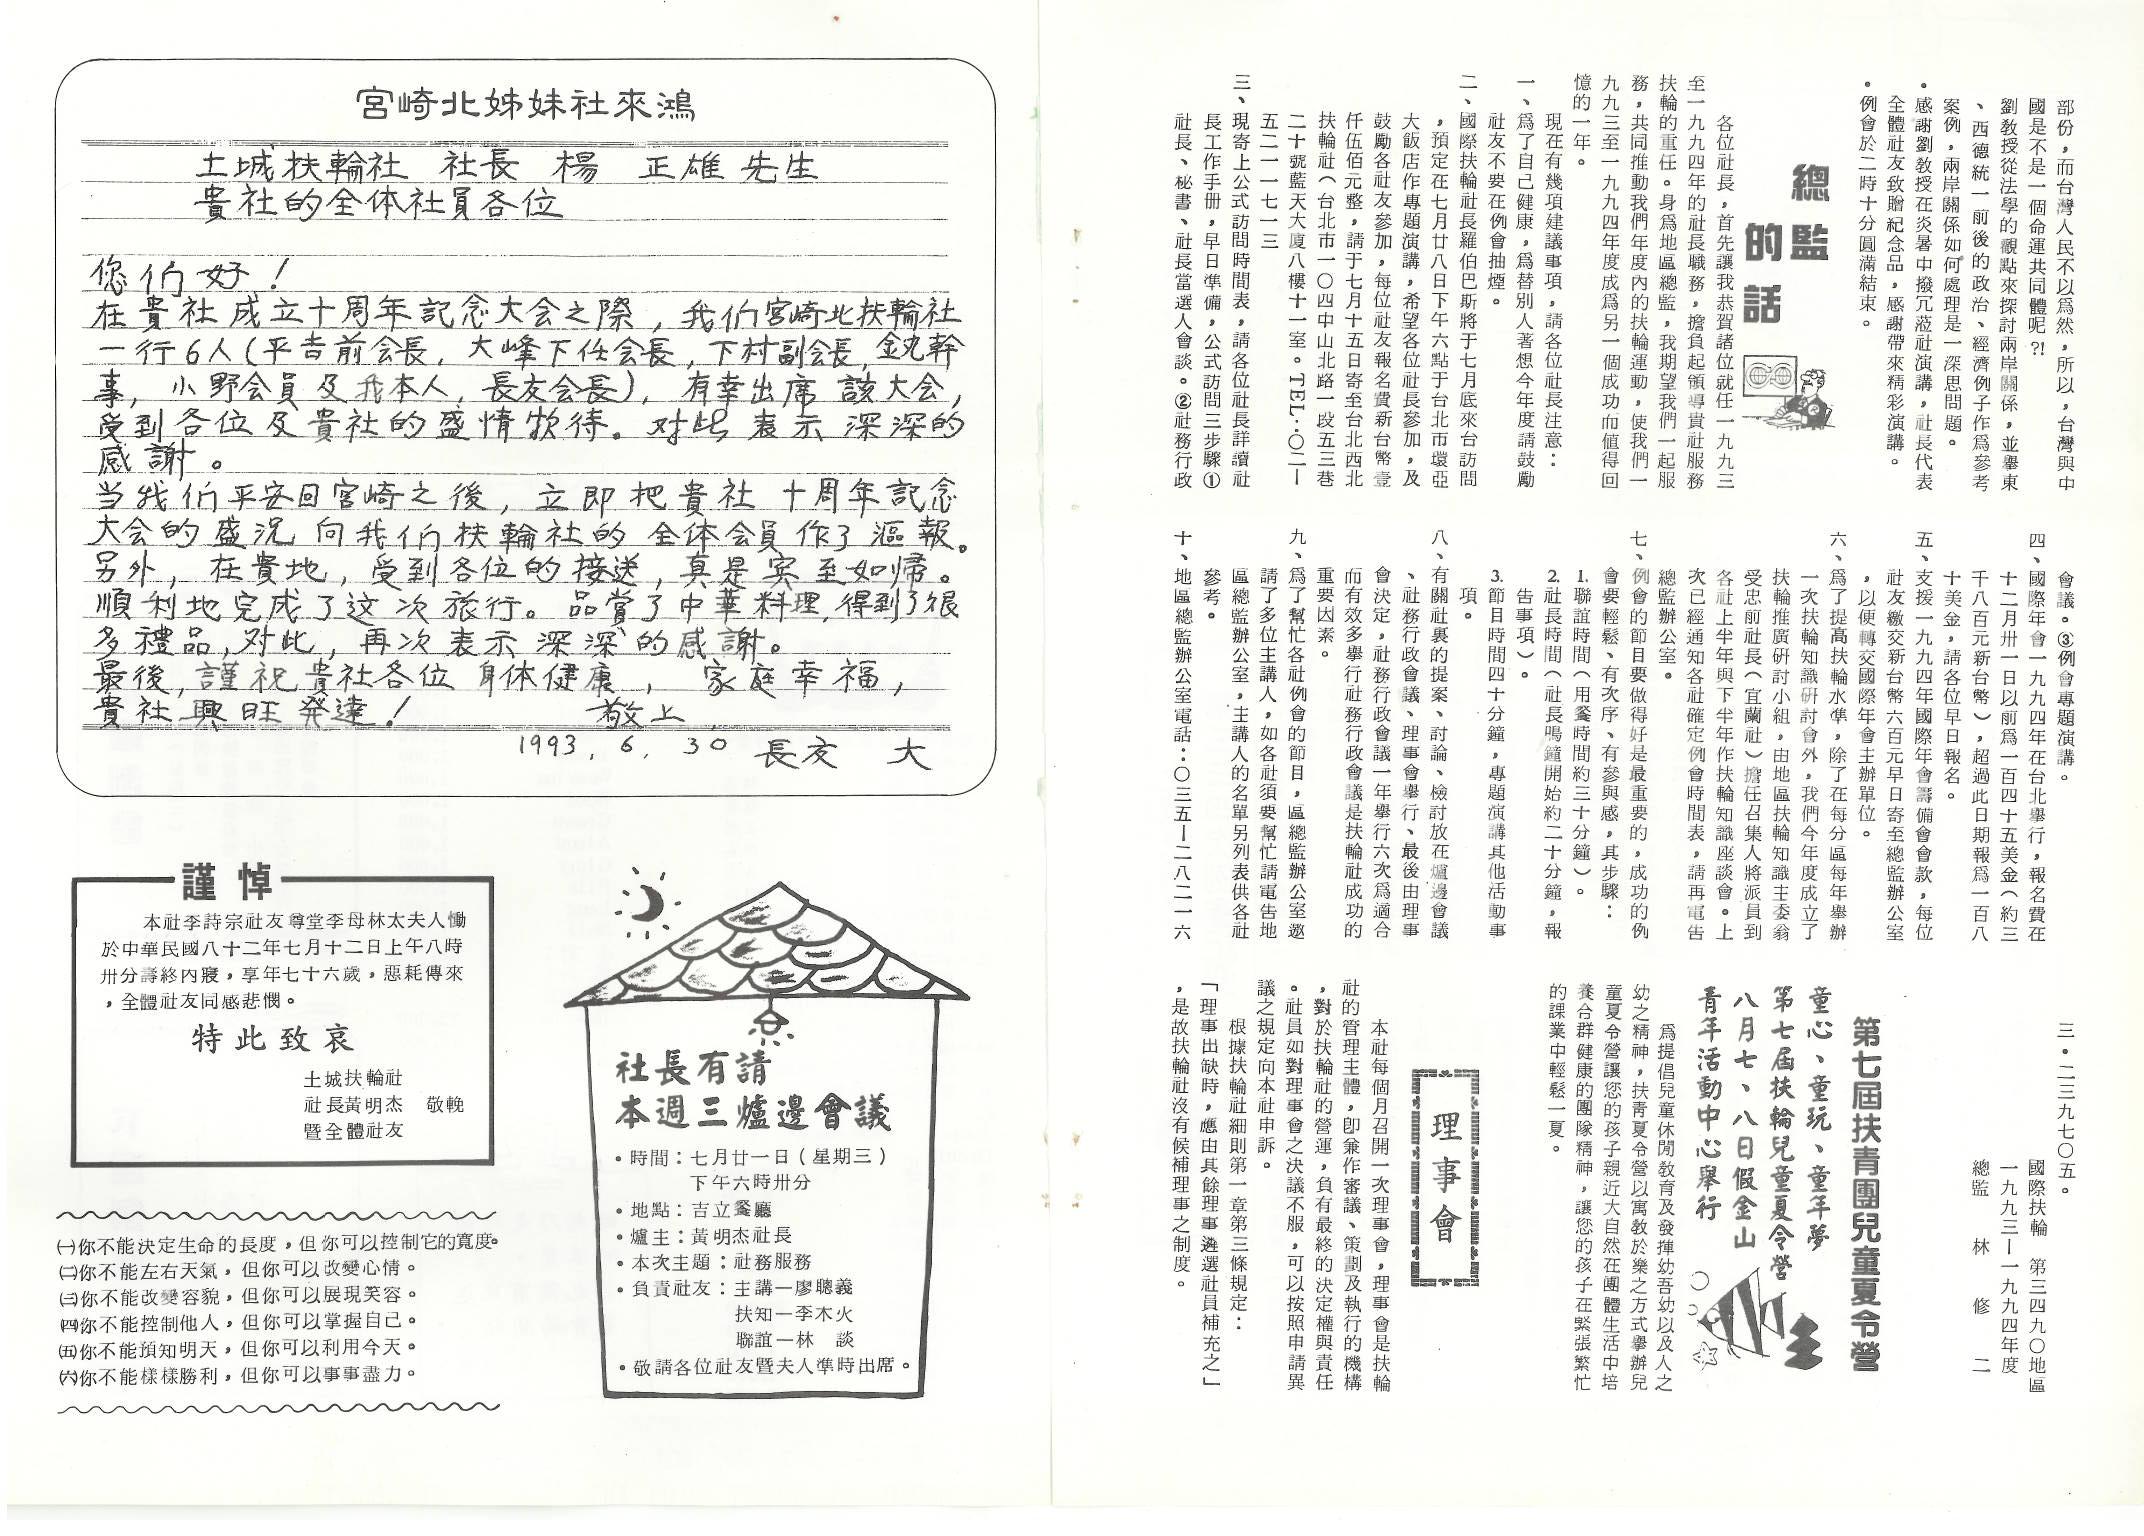 部份，而台灣人民不以爲然，所以，台灣與中
國是不是一個命運共同體呢?!
劉敎授從法學的觀點來探討兩岸關係，並擧東
、西德統一前後的政治、經濟例子作爲參考
案例，兩岸關係如何處理是一深思問題。
・感謝劉敎授在炎暑中撥冗蒞社演講，社長代表
全體社友致贈紀念品，感謝帶來精彩演講。
・例會於二時十分圓滿結束。
總監
的話
各位社長，首先讓我恭賀諸位就任一九九三
至一九九四年的社長職務，擔負起領導貴社服務
扶輪的重任。身爲地區總監，我期望我們一起服
務，共同推動我們年度內的扶輪運動，使我們一
九九三至一九九四年度成爲另一個成功而值得回
憶的一年。
現在有幾項建議事項，請各位社長注意：
一、爲了自己健康，爲替別人著想今年度請鼓勵
社友不要在例會抽煙。
二、國際扶輪社長羅伯巴斯將于七月底來台訪問
，預定在七月廿八日下午六點于台北市環亞
大飯店作專題演講，希望各位社長參加，及
鼓勵各社友參加，每位社友報名費新台幣壹
仟伍佰元整，請于七月十五日寄至台北西北
扶輪社（台北市一〇四中山北路一段五三巷
二十號藍天大廈八樓十一室。TEL：〇二—
五二一一七一三
三、現寄上公式訪問時間表，請各位社長詳讀社
長工作手册，早日準備，公式訪問三步驟①
社長、秘書、社長當選人會談。②社務行政
會議。③例會專題演講。
四、國際年會一九九四年在台北擧行，報名費在
十二月卅一日以前爲一百四十五美金（約三
千八百元新台幣），超過此日期報爲一百八
十美金，請各位早日報名。
五、支援一九九四年國際年會籌備會會款，每位
社友繳交新台幣六百元早日寄至總監辦公室
，以便轉交國際年會主辦單位。
六、爲了提高扶輪水準，除了在每分區每年擧辦
一次扶輪知識研討會外，我們今年度成立了
扶輪推廣研討小組，由地區扶輪知識主委翁
受忠前社長（宜蘭社）擔任召集人將派員到
各社上半年與下半年作扶輪知識座談會。上
次已經通知各社確定例會時間表，請再電告
總監辦公室。
七、例會的節目要做得好是最重要的，成功的例
會要輕鬆、有次序、有參與感，其步驟：
1.聯誼時間（用餐時間約三十分鐘）。
2.社長時間（社長鳴鐘開始約二十分鐘，報
告事項）。
3.節目時間四十分鐘，專題演講其他活動事
項。
八、有關社裏的提案、討論、檢討放在爐邊會議
、社務行政會議、理事會擧行、最後由理事
會決定，社務行政會議一年擧行六次爲適合
而有效多擧行社務行政會議是扶輪社成功的
重要因素。
九、爲了幫忙各社例會的節目，區總監辦公室邀
請了多位主講人，如各社須要幫忙請電告地
區總監辦公室，主講人的名單另列表供各社
參考。
十、地區總監辦公室電話：〇三五—二八二一六
三・二三九七〇五。
國際扶輪　第三四九〇地區
一九九三—一九九四年度
總監　林　修　二
第七屆扶青團兒童夏令營
童心、童玩、童年夢
第七屆扶輪兒童夏令營
八月七、八日假金山
青年活動中心擧行
爲提倡兒童休閒敎育及發揮幼吾幼以及人之
幼之精神，扶靑夏令營以寓敎於樂之方式擧辦兒
童夏令營讓您的孩子親近大自然在團體生活中培
養合群健康的團隊精神，讓您的孩子在緊張繁忙
的課業中輕鬆一夏。
理事會
本社每個月召開一次理事會，理事會是扶輪
社的管理主體，卽兼作審議、策劃及執行的機構
，對於扶輪社的營運，負有最終的決定權與責任
。社員如對理事會之決議不服，可以按照申請異
議之規定向本社申訴。
根據扶輪社細則第一章第三條規定：
「理事出缺時，應由其餘理事遴選社員補充之」
，是故扶輪社沒有候補理事之制度。
宮崎北姊妹社來鴻
土城扶輪社　社長　楊　正雄 先生
貴社的全体社員各位
您们好！
在貴社成立十周年記念大会之際，我们宮崎北扶輪社
一行6人（平吉前会長，大峰下任会長，下村副会長，金丸幹
事，小野会員及我本人，長友会長），有幸出席 該大会，
受到各位及貴社的盛情款待。对此 表示 深深的
感謝。
当我们平安回宮崎之後，立即把貴社 十周年記念
大会的盛況 向我们扶輪社的 全体会員 作了匯報。
另外，在貴地，受到各位的接送，真是賓至如帰。
順利地完成了这次旅行。品嘗了中華料理，得到了很
多禮品，对此，再次表示深深的感謝。
最後，謹祝貴社各位 身体健康，家庭幸福，
貴社興旺発達！　敬上
1993. 6. 30 長友　大
謹悼
本社李詩宗社友尊堂李母林太夫人慟
於中華民國八十二年七月十二日上午八時
卅分壽終內寢，享年七十六歲，惡耗傳來
，全體社友同感悲憫。
特此致哀
土城扶輪社
社長黃明杰　敬輓
暨全體社友
㈠你不能決定生命的長度，但你可以控制它的寬度。
㈡你不能左右天氣，但你可以改變心情。
㈢你不能改變容貌，但你可以展現笑容。
㈣你不能控制他人，但你可以掌握自己。
㈤你不能預知明天，但你可以利用今天。
㈥你不能樣樣勝利，但你可以事事盡力。
社長有請
本週三爐邊會議
・時間：七月廿一日（星期三）
下午六時卅分
・地點：吉立餐廳
・爐主：黃明杰社長
・本次主題：社務服務
・負責社友：主講—廖聰義
扶知—李木火
聯誼—林　談
・敬請各位社友暨夫人準時出席。